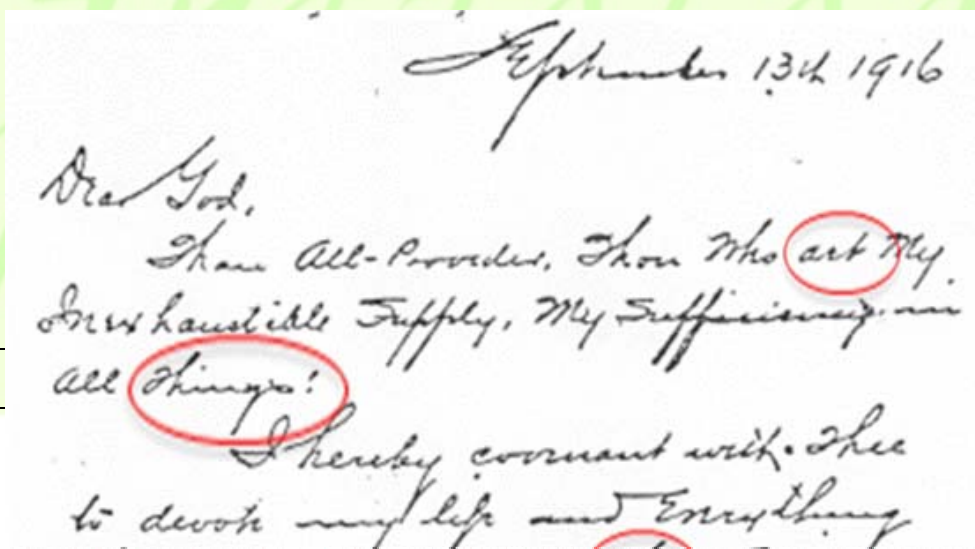 September 13th 1916
Dear God,
Thou All-Provider, Thou Who art My
Inexhaustible Supply, My Sufficiency in
All Things!
I hereby covenant with Thee
to devote my life and Everything